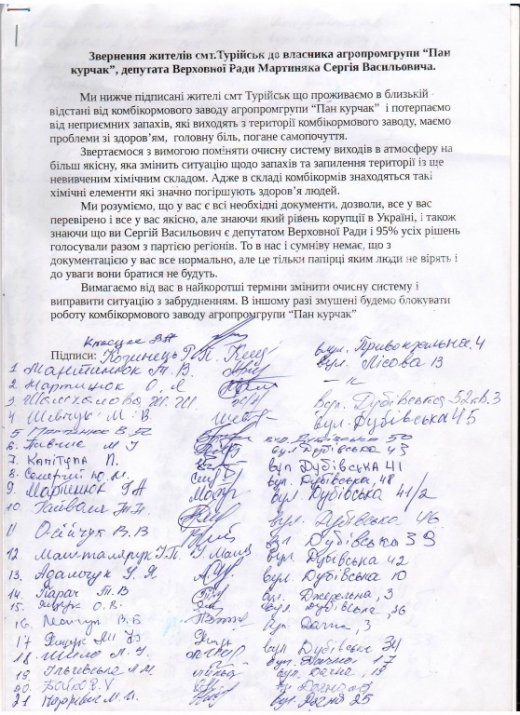 Звернення жителів смт.Турійськ до власника агропромгрупи “Пан
курчак”, депутата Верховної Ради Мартиняка Сергія Васильовича.
Ми нижче підписані жителі смт Турійськ що проживаємо в близькій
відстані від комбікормового заводу агропромгрупи “Пан курчак” і потерпаємо
від неприємних запахів, які виходять з території комбікормового заводу, маємо
проблеми зі здоров’ям, головну біль, погане самопочуття.
Звертаємося з вимогою поміняти очисну систему виходів в атмосферу на
більш якісну, яка змінить ситуацію щодо запахів та запилення території із ще
невивченим хімічним складом. Адже в складі комбікормів знаходяться такі
хімічні елементи які значно погіршують здоров’я людей.
Ми розуміємо, що у вас є всі необхідні документи, дозволи, все у вас
перевірено і все у вас якісно, але знаючи який рівень корупції в Україні, і також
знаючи що ви Сергій Васильович є депутатом Верховної Ради і 95% усіх рішень
голосували разом з партією регіонів. То в нас і сумніву немає, що з
документацією у вас все нормально, але це тільки папірці яким люди не вірять і
до уваги вони братися не будуть.
Вимагаємо від вас в найкоротші терміни змінити очисну систему і
виправити ситуацію з забрудненням. В іншому разі змушені будемо блокувати
роботу комбікормового заводу агропромгрупи “Пан курчак”
Підписи: вул. Привокзальна 4
1 Мартинюк Т. В. вул. Лісова 13
2 Мартинюк О. Я.
3 Ж. Ж. вул. Дубівська
4 Шевчук М. В вул. Дубівська 45
5 50
6 М У вул Дубівська 43
7. Капітула П. вул Дубівська 41
8. Ю. М. вул. Дубівська, 48
9 Мартинюк Г А вул. Дубівська 41/2
10 вул. Дубівська 46
11 Осійчук В. В вул Дубівська 39
12 вул. Дубівська 42
13. Адамчук Г. Я вул. Дубівська 10
14 Парач Т. В вул. Джерельна, 3
15. Ящук О. В. вул. Дубівська, 36
16. В. Б вул. Дачна, 3
17 вул Дубівська 34
18 вул. Дачна 17
19 вул. Дачна, 19
20. Бойко
21 М. Д. 25